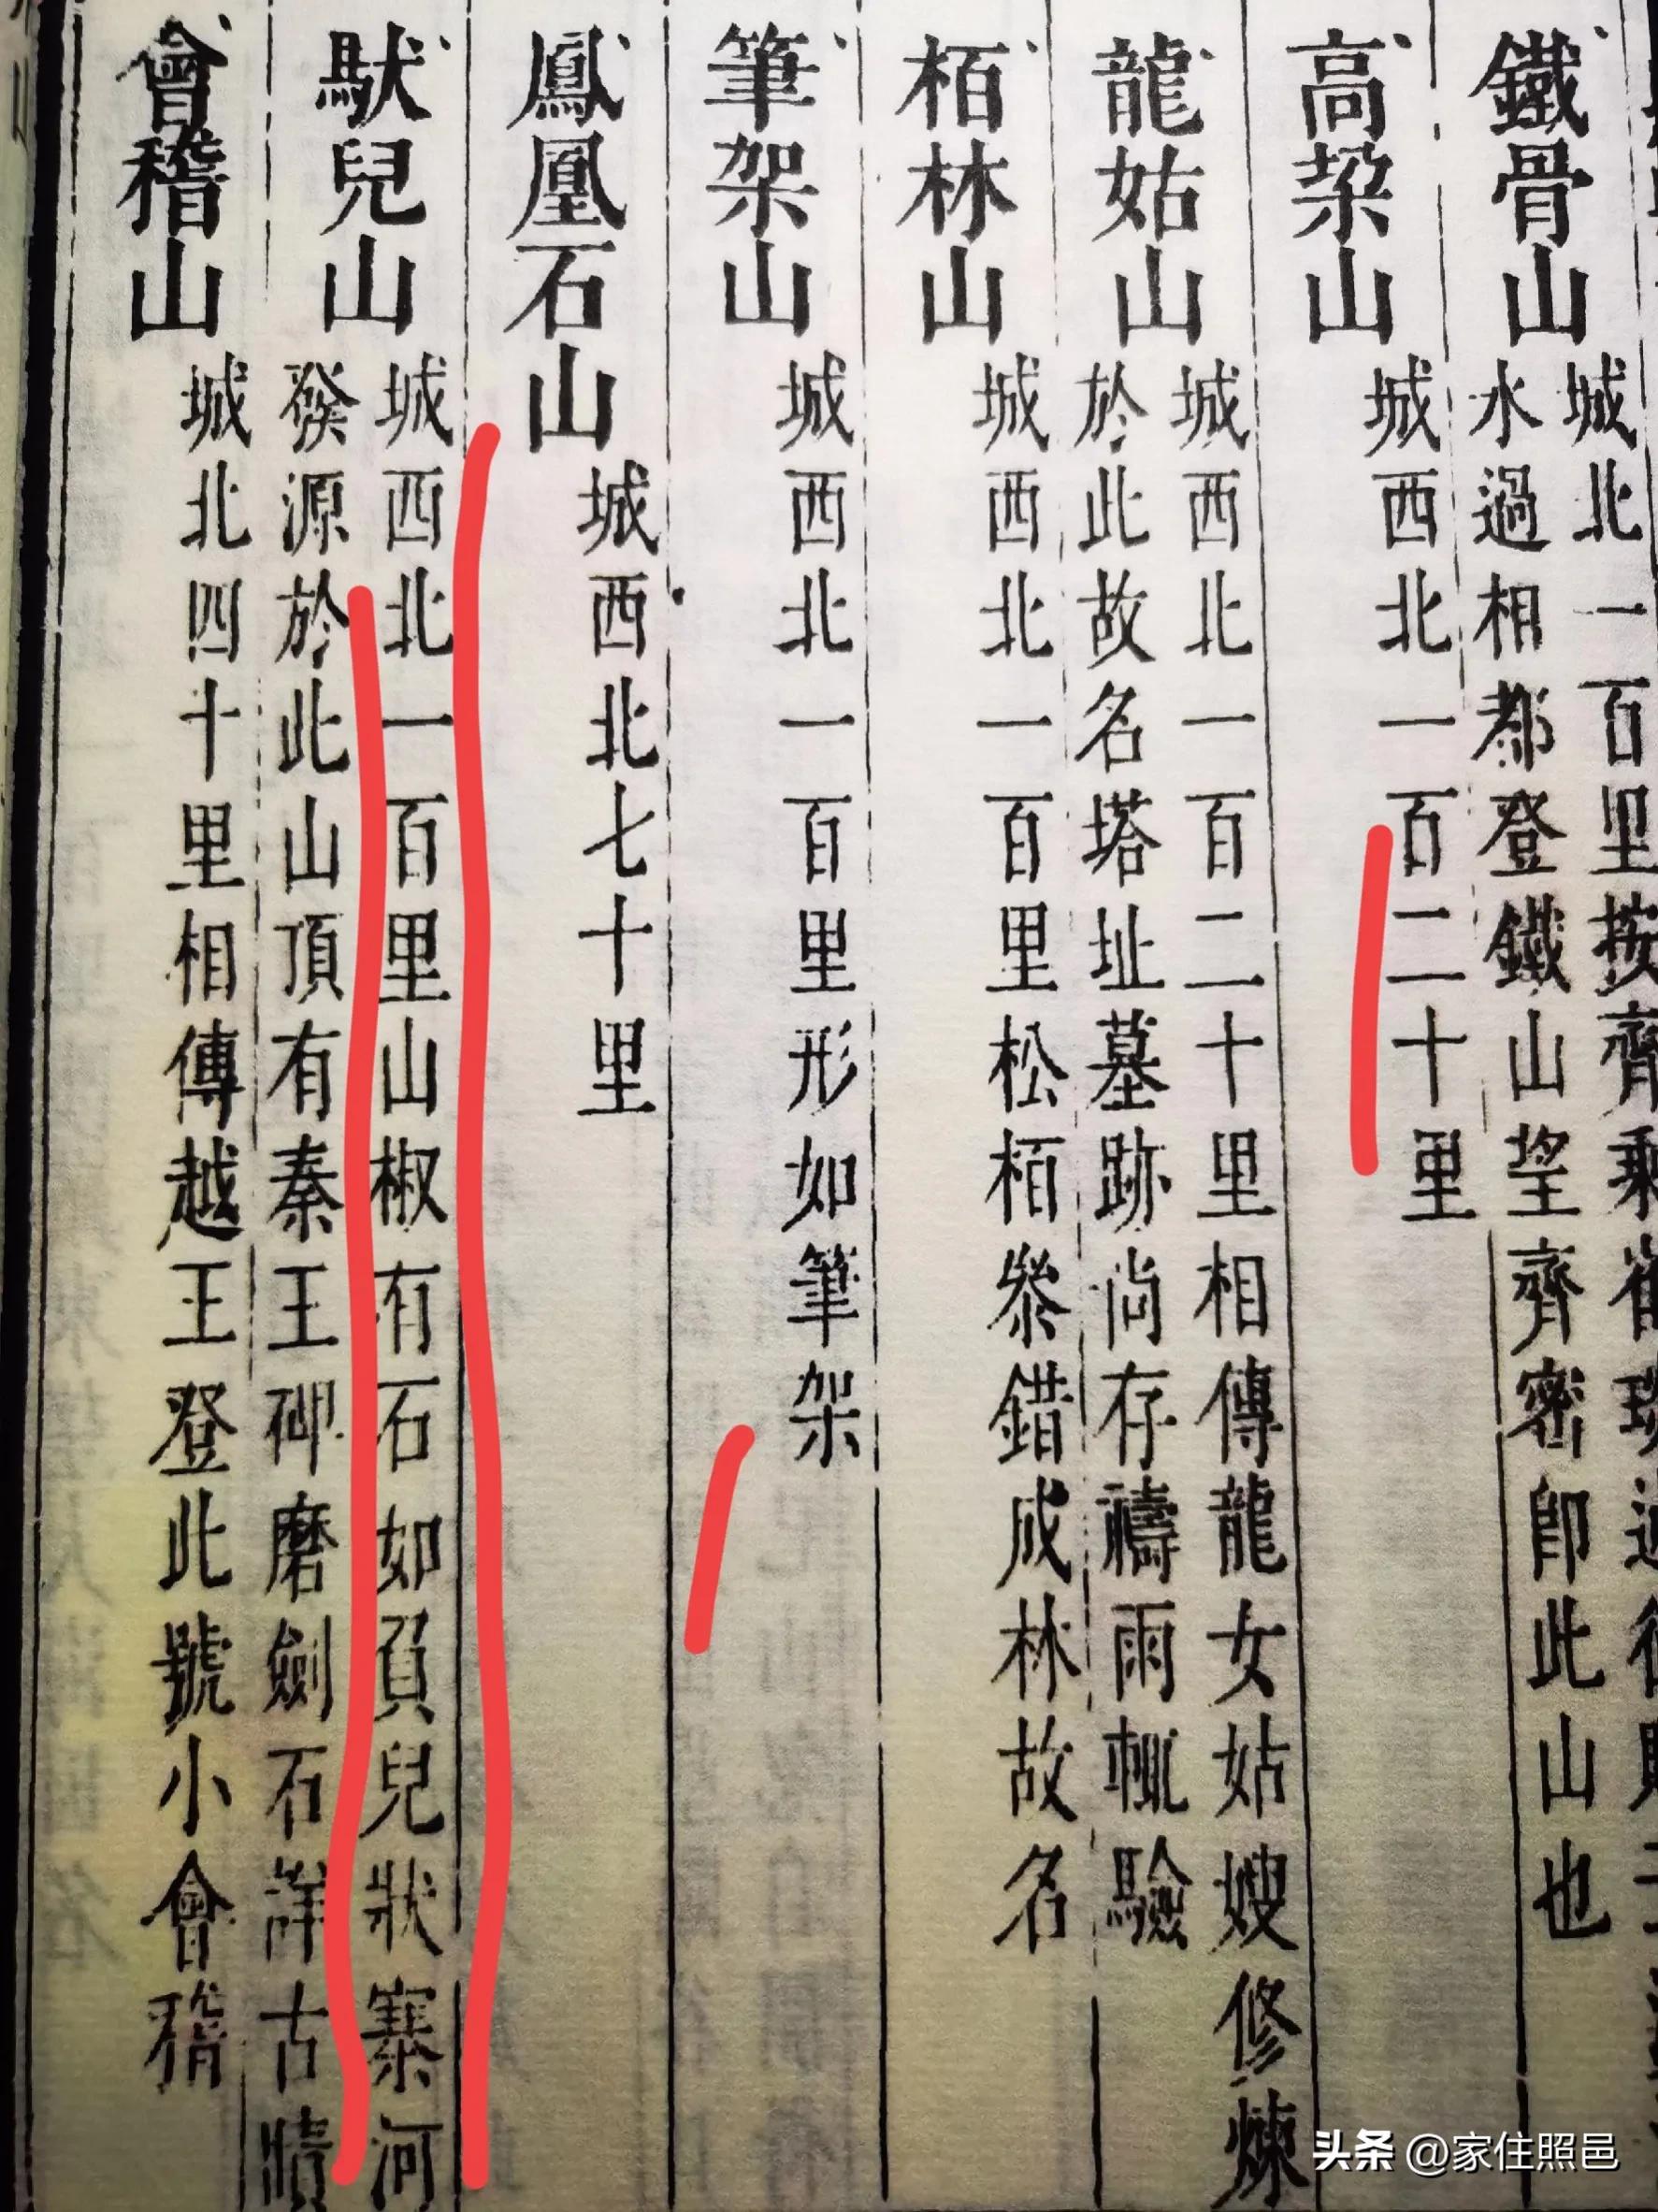 鐵骨山
城北一百里按齊乘崔琰
水過相都登鐵山望齊密卽此山也
高梁山
城西北一百二十里
龍姑山
城西北一百二十里相傳龍女姑嫂修煉
於此故名塔址墓跡尚存禱雨輒驗
栢林山
城西北一百里松栢叅錯成林故名
筆架山
城西北一百里形如筆架
鳳凰石山
城西北七十里
䭾兒山
城西北一百里山椒有石如負兒狀寨河
發源於此山頂有秦王碑磨劍石詳古蹟
會稽山
城北四十里相傳越王登此號小會稽
头条 @家住照邑